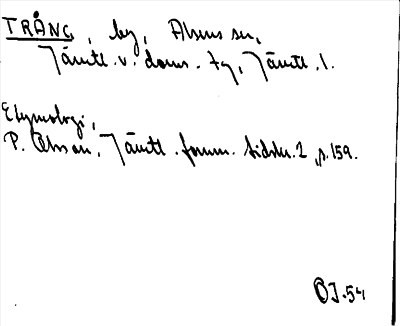 TRÅNG, by, Alsens sn,
Jämtl. v. doms. tg, Jämtl. l.
Etymologi,
P. Olsson, Jämtl. fornm. tidskr. 2, s. 159.
OJ. 54